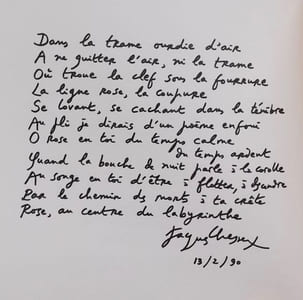 Dans la trame ourdie d'air
A ne quitter l'air, ni la trame
Où troue la clef sous la fourrure
La ligne rose, la coupure
Se lovant, se cachant dans la ténèbre
Au pli je dirais d'un poème enfoui
O rose en toi du temps calme
du temps ardent
Quand la bouche de nuit parle à la corolle
Au songe en toi d'être à flotter, à descendre
Par le chemin des morts à ta crête
Rose, au centre du labyrinthe
Jacques Chessex
13/2/90